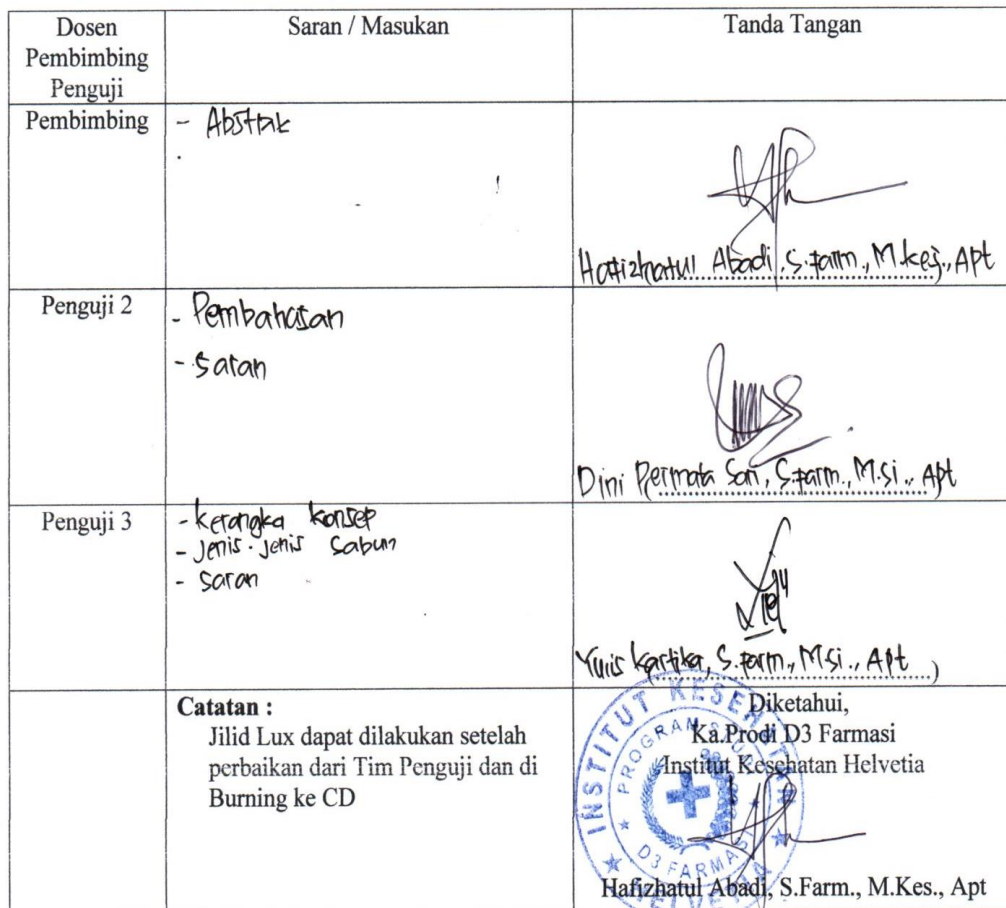 Dosen
Pembimbing
Penguji
Saran / Masukan
Tanda Tangan
Pembimbing
- Abstrak
Hafizhatul Abadi, S.Farm., M.Kes., Apt
Penguji 2
- Pembahasan
- Saran
Dini Permata Sari, S.Farm., M.Si., Apt
Penguji 3
- Kerangka Konsep
- Jenis-Jenis Sabun
- Saran
Yuris Kartika, S.Farm., MSi., Apt )
Catatan :
Jilid Lux dapat dilakukan setelah
perbaikan dari Tim Penguji dan di
Burning ke CD
Diketahui,
Ka.Prodi D3 Farmasi
Institut Kesehatan Helvetia
INSTITUT KESEHATAN
HELVETIA
PROGRAM STUDI
D3 FARMASI
Hafizhatul Abadi, S.Farm., M.Kes., Apt